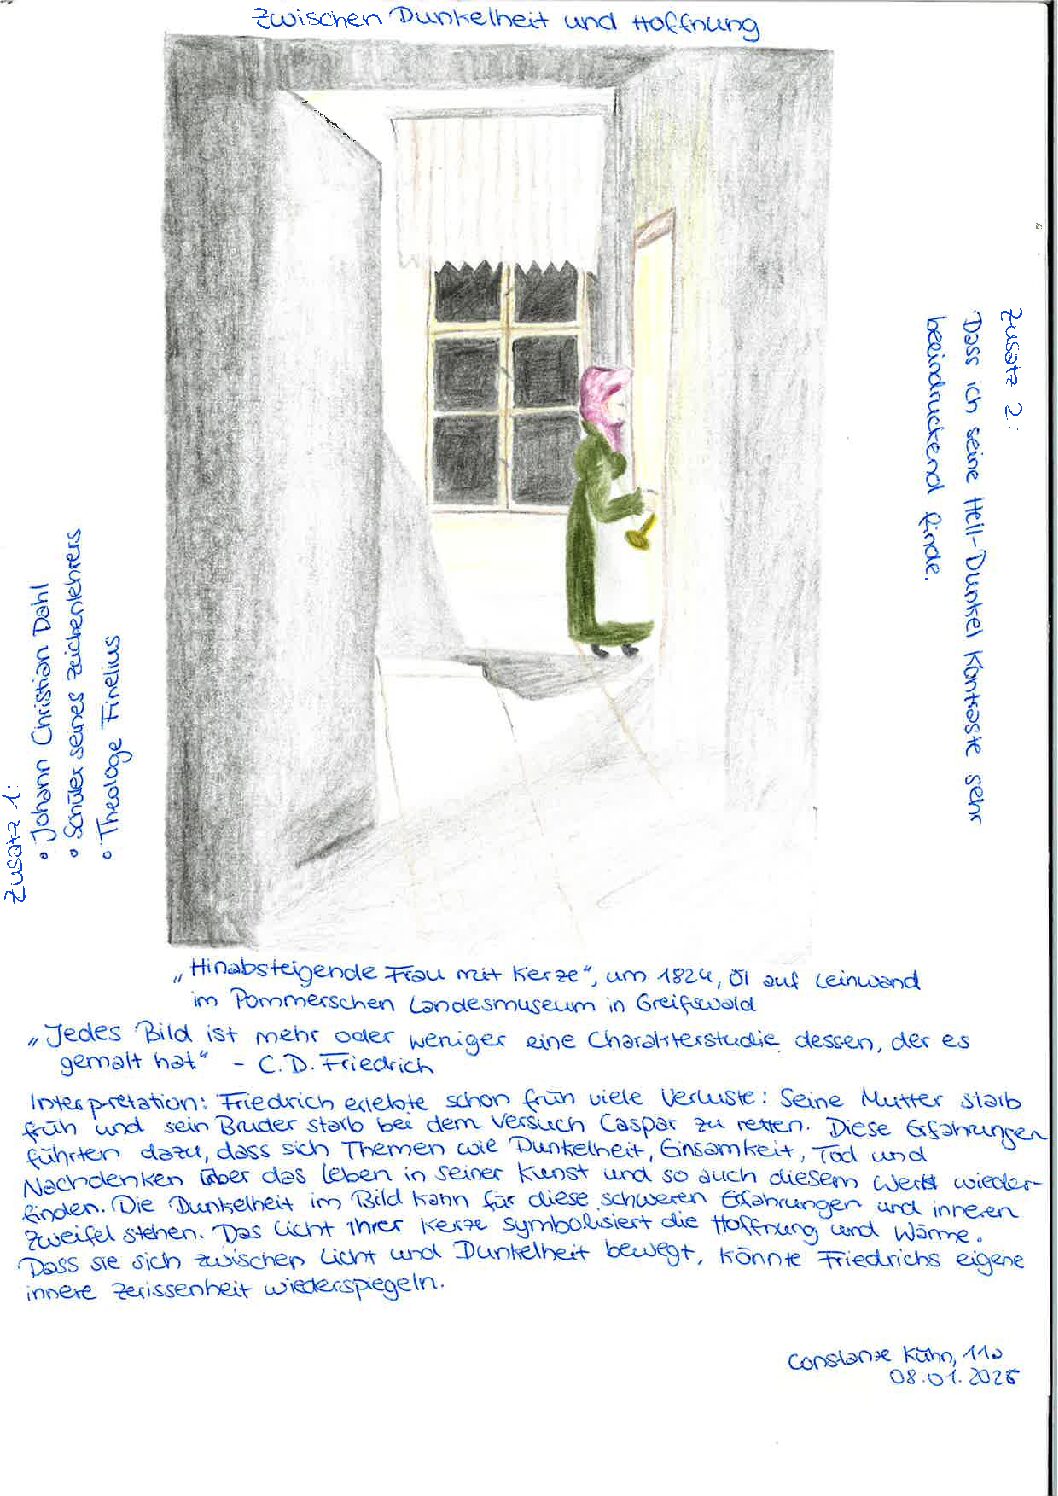 Zwischen Dunkelheit und Hoffnung
Zusatz 1:
• Johann Christian Dahl
• Schüler seines Zeichenlehrers
• Theologe Finelius
Zusatz 2:
Dass ich seine Hell-Dunkel Kontraste sehr
beeindruckend finde.
„Hinabsteigende Frau mit Kerze“, um 1824, Öl auf Leinwand
im Pommerschen Landesmuseum in Greifswald
„Jedes Bild ist mehr oder weniger eine Charakterstudie dessen, der es
gemalt hat“ - C.D. Friedrich
Interpretation: Friedrich erlebte schon früh viele Verluste: Seine Mutter starb
früh und sein Bruder starb bei dem Versuch Caspar zu retten. Diese Erfahrungen
führten dazu, dass sich Themen wie Dunkelheit, Einsamkeit, Tod und
Nachdenken über das Leben in seiner Kunst und so auch diesem Werk wieder-
finden. Die Dunkelheit im Bild kann für diese schweren Erfahrungen und inneren
Zweifel stehen. Das Licht ihrer Kerze symbolisiert die Hoffnung und Wärme.
Dass sie sich zwischen Licht und Dunkelheit bewegt, könnte Friedrichs eigene
innere Zerissenheit wiederspiegeln.
Constanze Kühn, 11a
08.01.